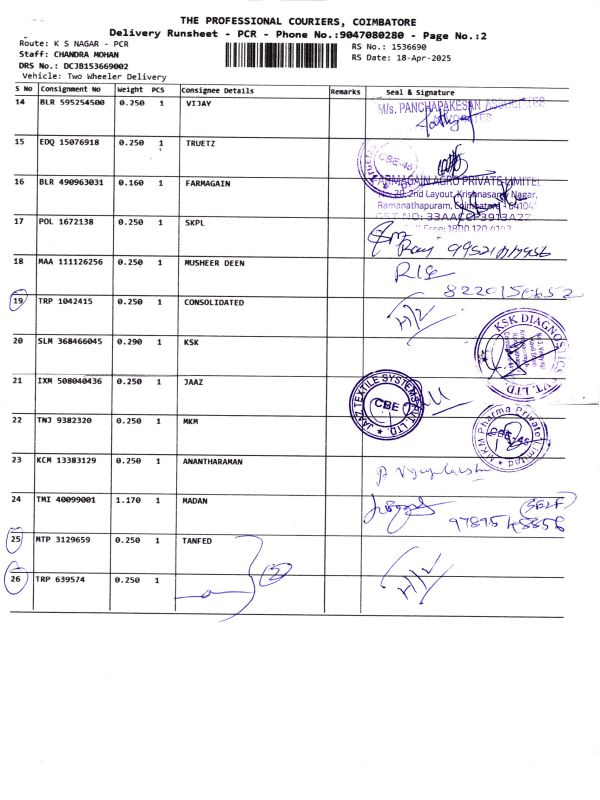 THE PROFESSIONAL COURIERS, COIMBATORE
Delivery Runsheet - PCR - Phone No.:9047080280 - Page No.:2
Route: K S NAGAR - PCR
RS No.: 1536690
Staff: CHANDRA MOHAN
RS Date: 18-Apr-2025
DRS No.: DCJB153669002
Vehicle: Two Wheeler Delivery
S No Consignment No Weight PCS Consignee Details Remarks Seal & Signature
14 BLR 595254500 0.250 1 VIJAY
M/s. PANCHAPAKESAN ASSOCIATES
15 EDQ 15076918 0.250 1 TRUETZ
CBE-45
16 BLR 490963031 0.160 1 FARMAGAIN
FARMAGAIN AGRO PRIVATE LIMITED
2nd Layout, Krishnasamy Nagar,
Ramanathapuram, Coimbatore - 64104
GST NO: 33AACCF3913A27
17 POL 1672138 0.250 1 SKPL
18 MAA 111126256 0.250 1 MUSHEER DEEN
19 TRP 1042415 0.250 1 CONSOLIDATED
20 SLM 368466045 0.290 1 KSK
KSK DIAGNOSTICS PVT. LTD.
21 IXM 508040436 0.250 1 JAAZ
JAAZ TEXTILE SYSTEMS PVT. LTD.
CBE
22 TNJ 9382320 0.250 1 MKM
MKM Pharma Private Limited
CBE-45
23 KCM 13383129 0.250 1 ANANTHARAMAN
24 TMI 40099001 1.170 1 MADAN
(SELF)
25 MTP 3129659 0.250 1 TANFED
26 TRP 639574 0.250 1